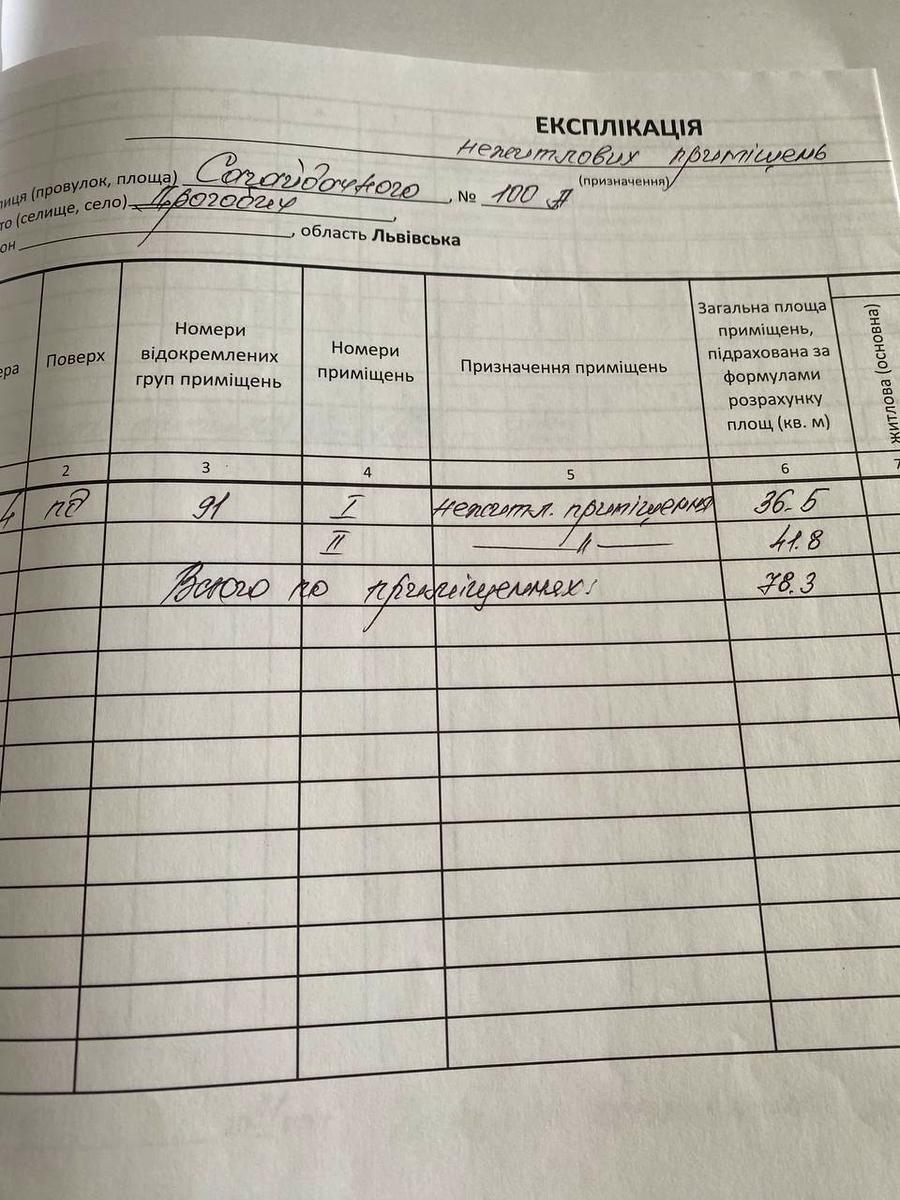 ЕКСПЛІКАЦІЯ
нежитлових приміщень
(призначення)
лиця (провулок, площа) Сагайдачного, № 100 Д
то (селище, село) Дрогобич,
он , область Львівська
ера
Поверх
Номери
відокремлених
груп приміщень
Номери
приміщень
Призначення приміщень
Загальна площа
приміщень,
підрахована за
формулами
розрахунку
площ (кв. м)
житлова (основна)
2 3 4 5 6 7
4 пд 91 I нежитл. приміщення 36.5
II —〃— 41.8
Всього по приміщеннях: 78.3